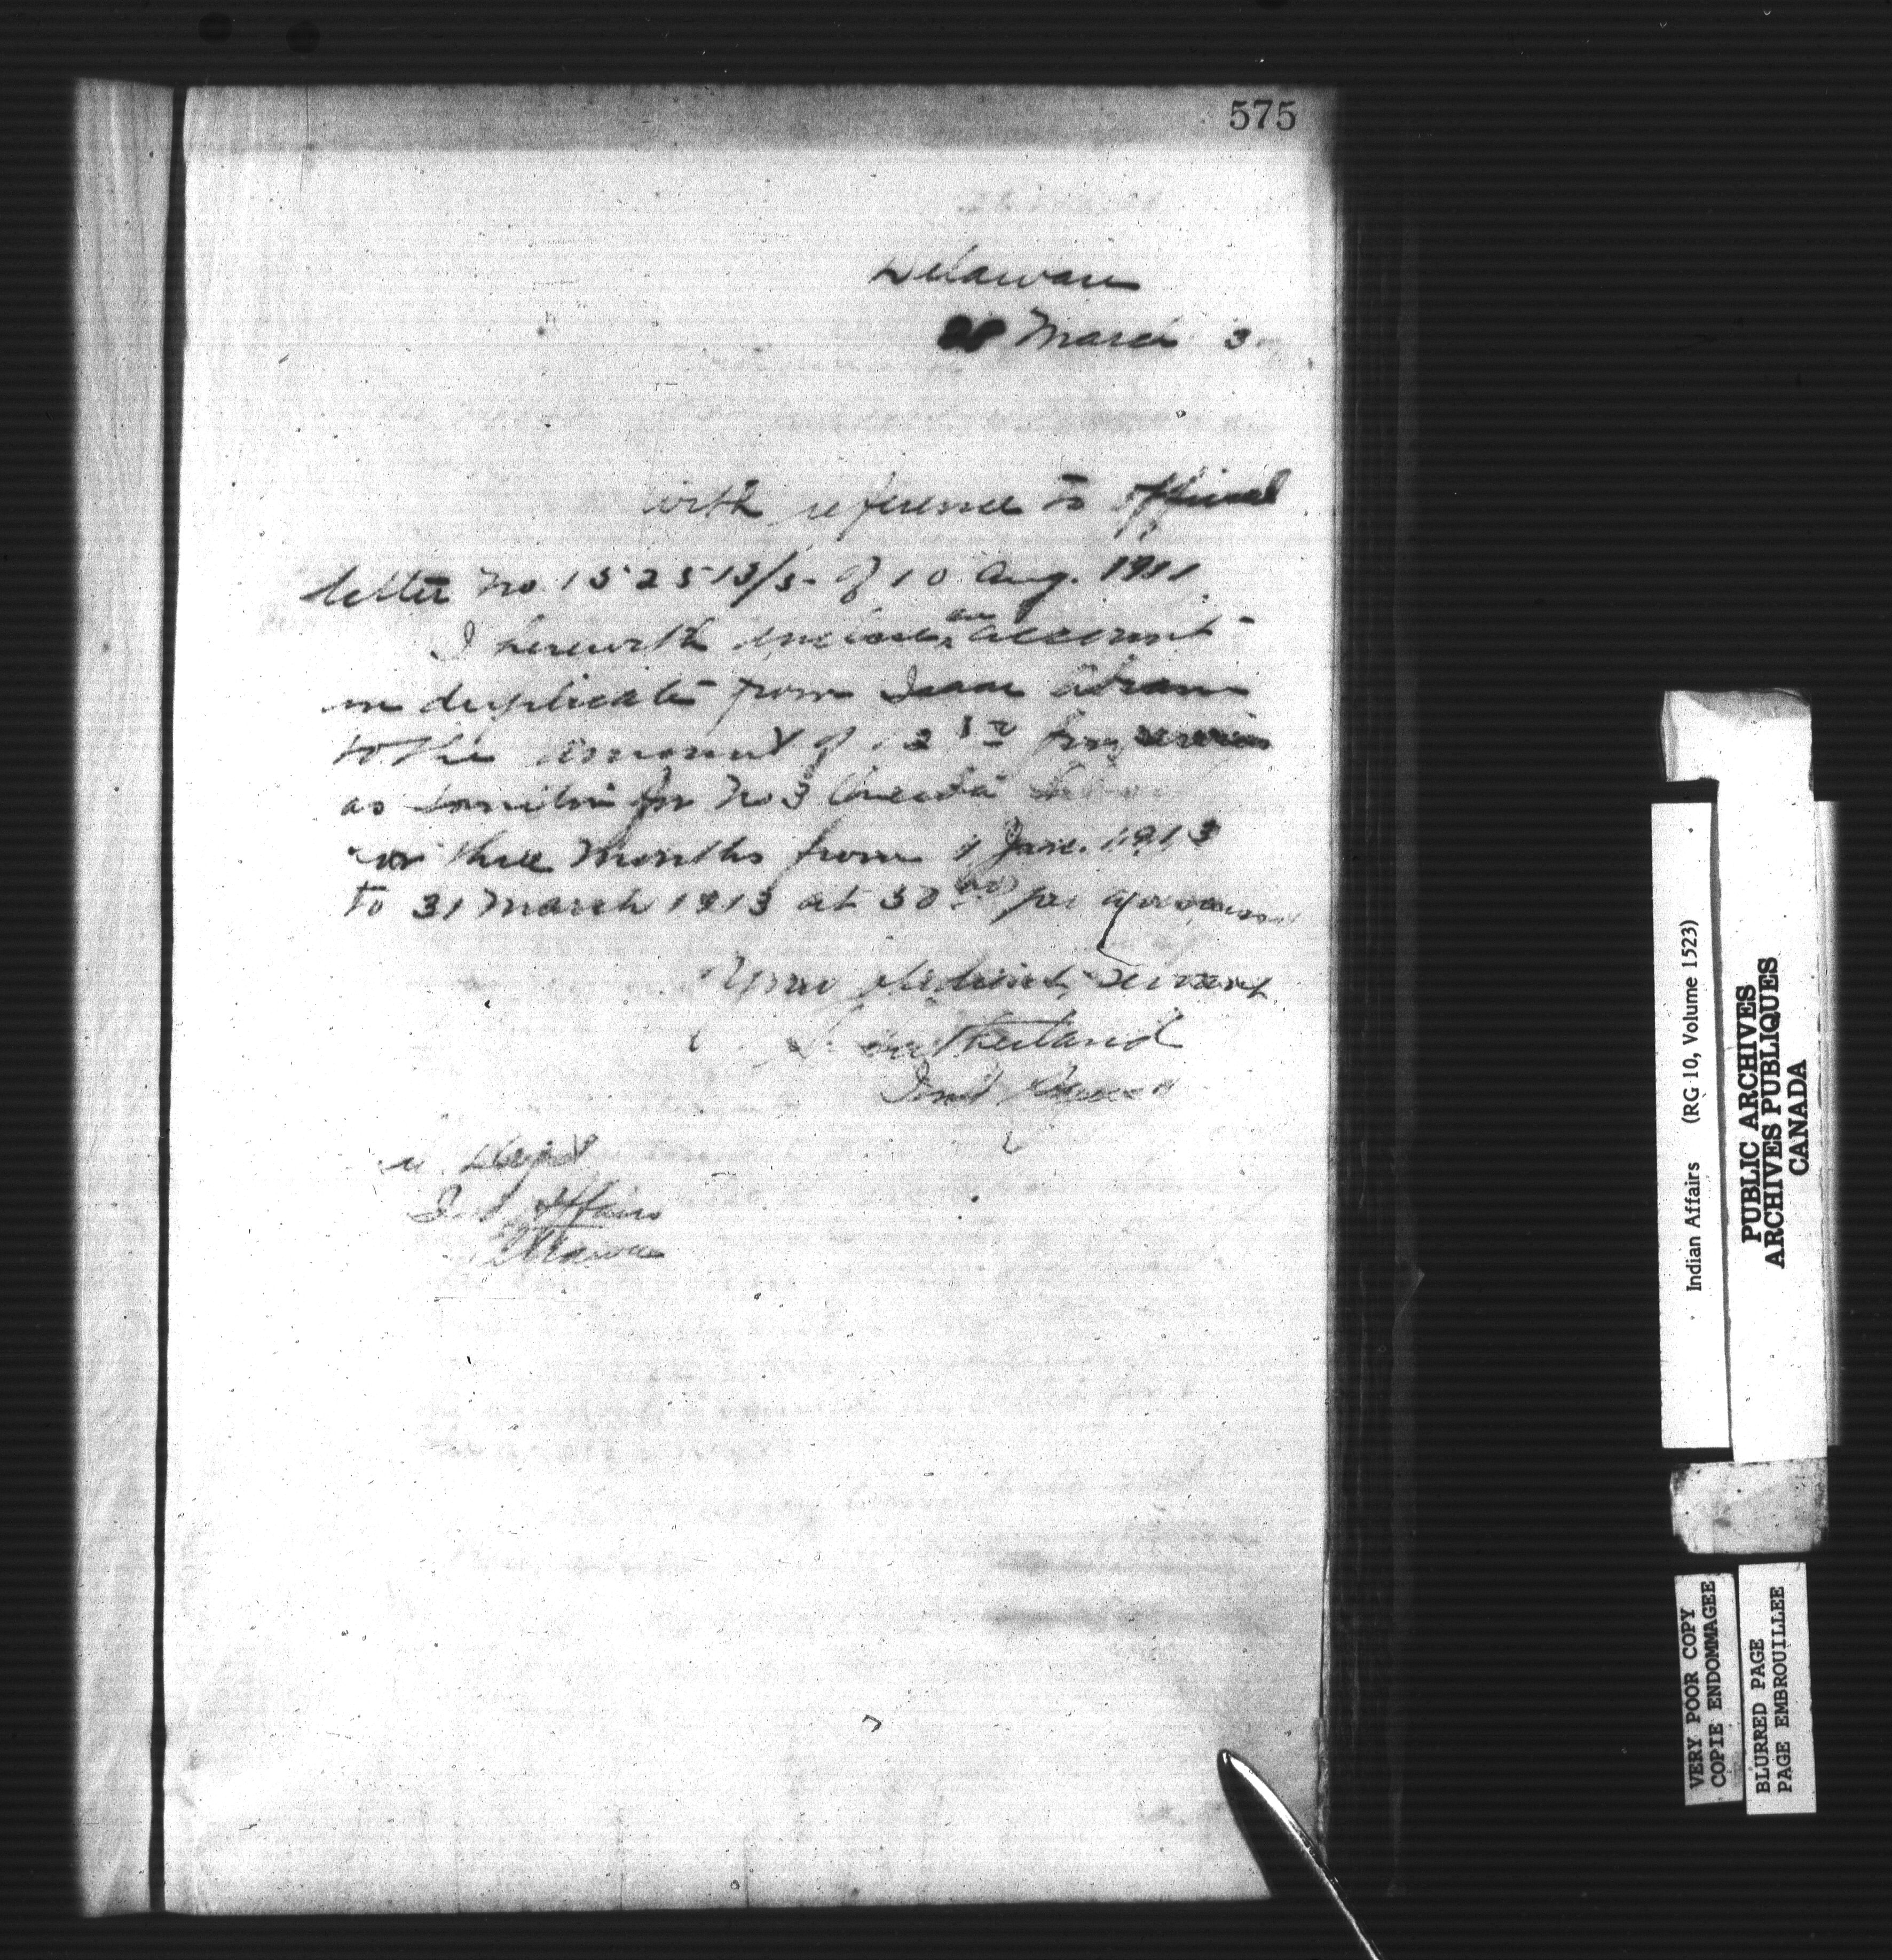 575
Delaware
28 March 3
With reference to official
letter No. 152513/5- of 10 Aug. 1911
I herewith enclose an account
in duplicate from Isaac Abram
to the amount of 12 50 for services
as Janitor for No 3 Oneida
for three months from 1 Jan. 1913
to 31 March 1913 at 50 00 per
Your obedient servant
S. Sutherland
Ind Agent
Dept
Ind Affairs
Ottawa
Indian Affairs (RG 10, Volume 1523)
PUBLIC ARCHIVES
ARCHIVES PUBLIQUES
CANADA
VERY POOR COPY
COPIE ENDOMMAGEE
BLURRED PAGE
PAGE EMBROUILLEE